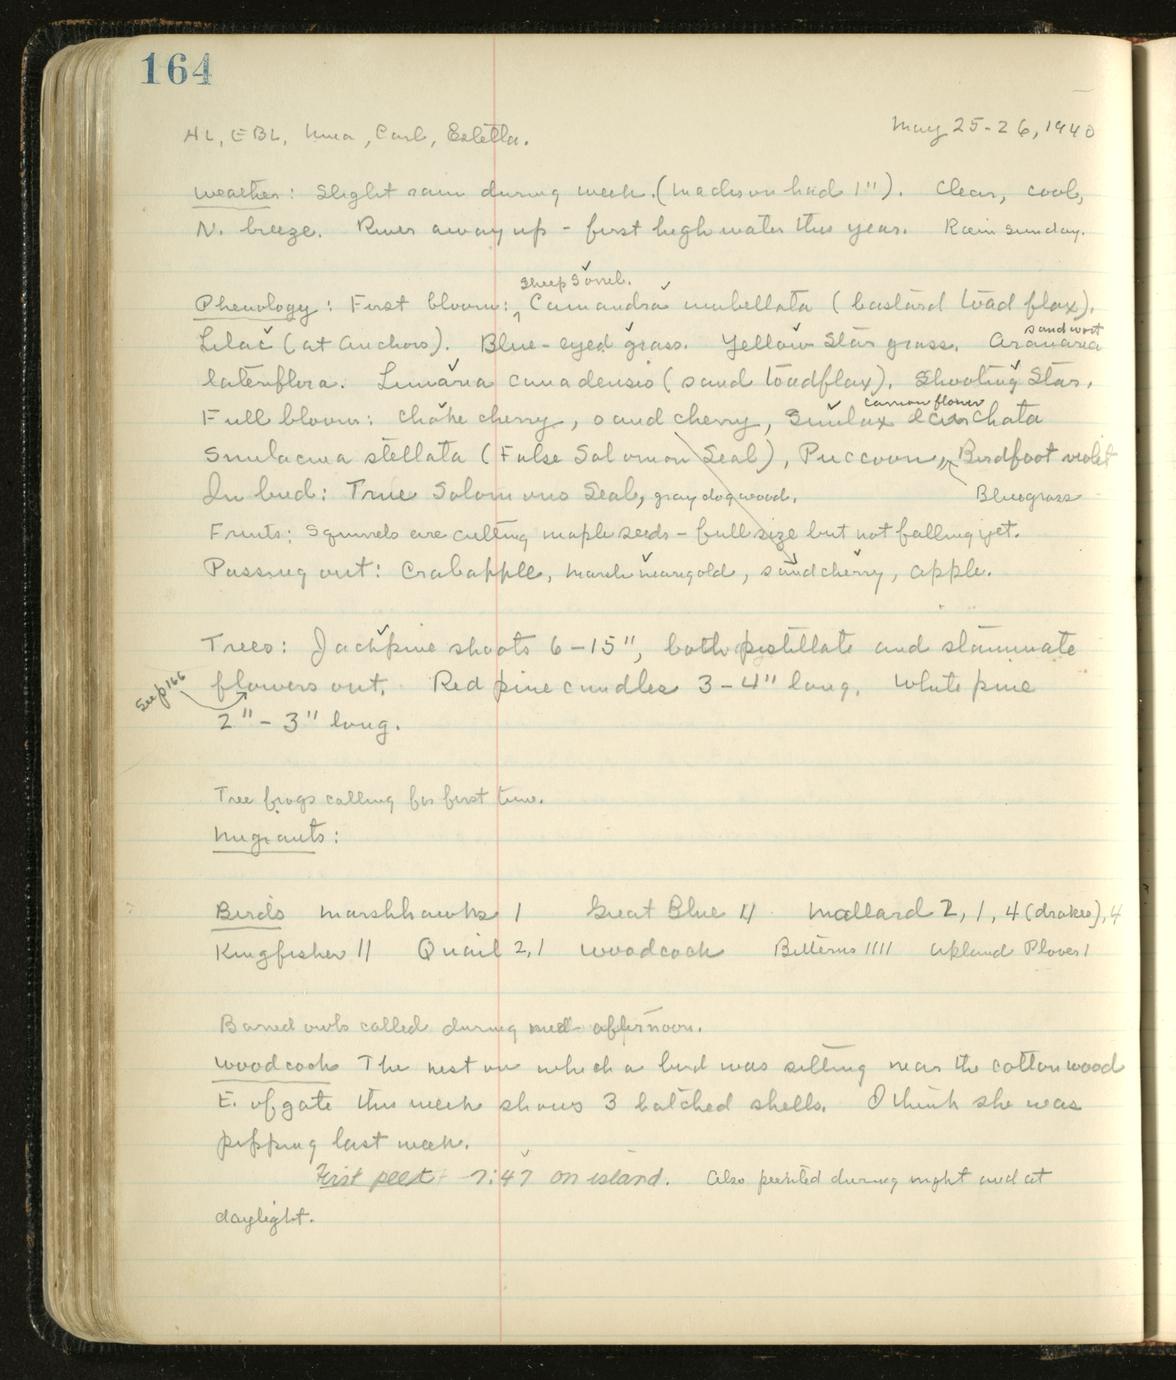 164
AL, EBL, Nina, Carl, Estella.
May 25-26, 1940
Weather: Slight rain during week. (Madison had 1"). Clear, cool,
N. breeze. River away up - first high water this year. Rain Sunday.
Sheep Sorrel.
Phenology: First bloom: Comandra umbellata (bastard toad flax).
sandwort
Lilac (at Anchors). Blue-eyed grass. Yellow Star grass. Arenaria
lateriflora. Linaria canadensis (sand toadflax). Shooting Star.
carrion flower
Full bloom: Choke cherry, sand cherry, Smilax
Smilacina stellata (False Solomon Seal), Puccoon, Birdfoot violet
Bluegrass
In bud: True Solomons Seal, gray dogwood.
Fruits: Squirrels are cutting maple seeds - full size but not falling yet.
Passing out: Crabapple, marsh marigold, sand cherry, apple.
Trees: Jackpine shoots 6-15", both pistillate and staminate
See p 166
flowers out. Red pine candles 3-4" long. White pine
2"-3" long.
Tree frogs calling for first time.
Migrants:
Birds Marshhawks 1 Great Blue 11 Mallard 2, 1, 4 (drakes), 4
Kingfisher 11 Quail 2, 1 Woodcock Bitterns 1111 Upland Plover 1
Barred owls called during mid-afternoon.
Woodcock The nest on which a bird was sitting near the cottonwood
E. of gate this week shows 3 hatched shells. I think she was
pipping last week.
First peent - 7:47 on island. Also peented during night and at
daylight.